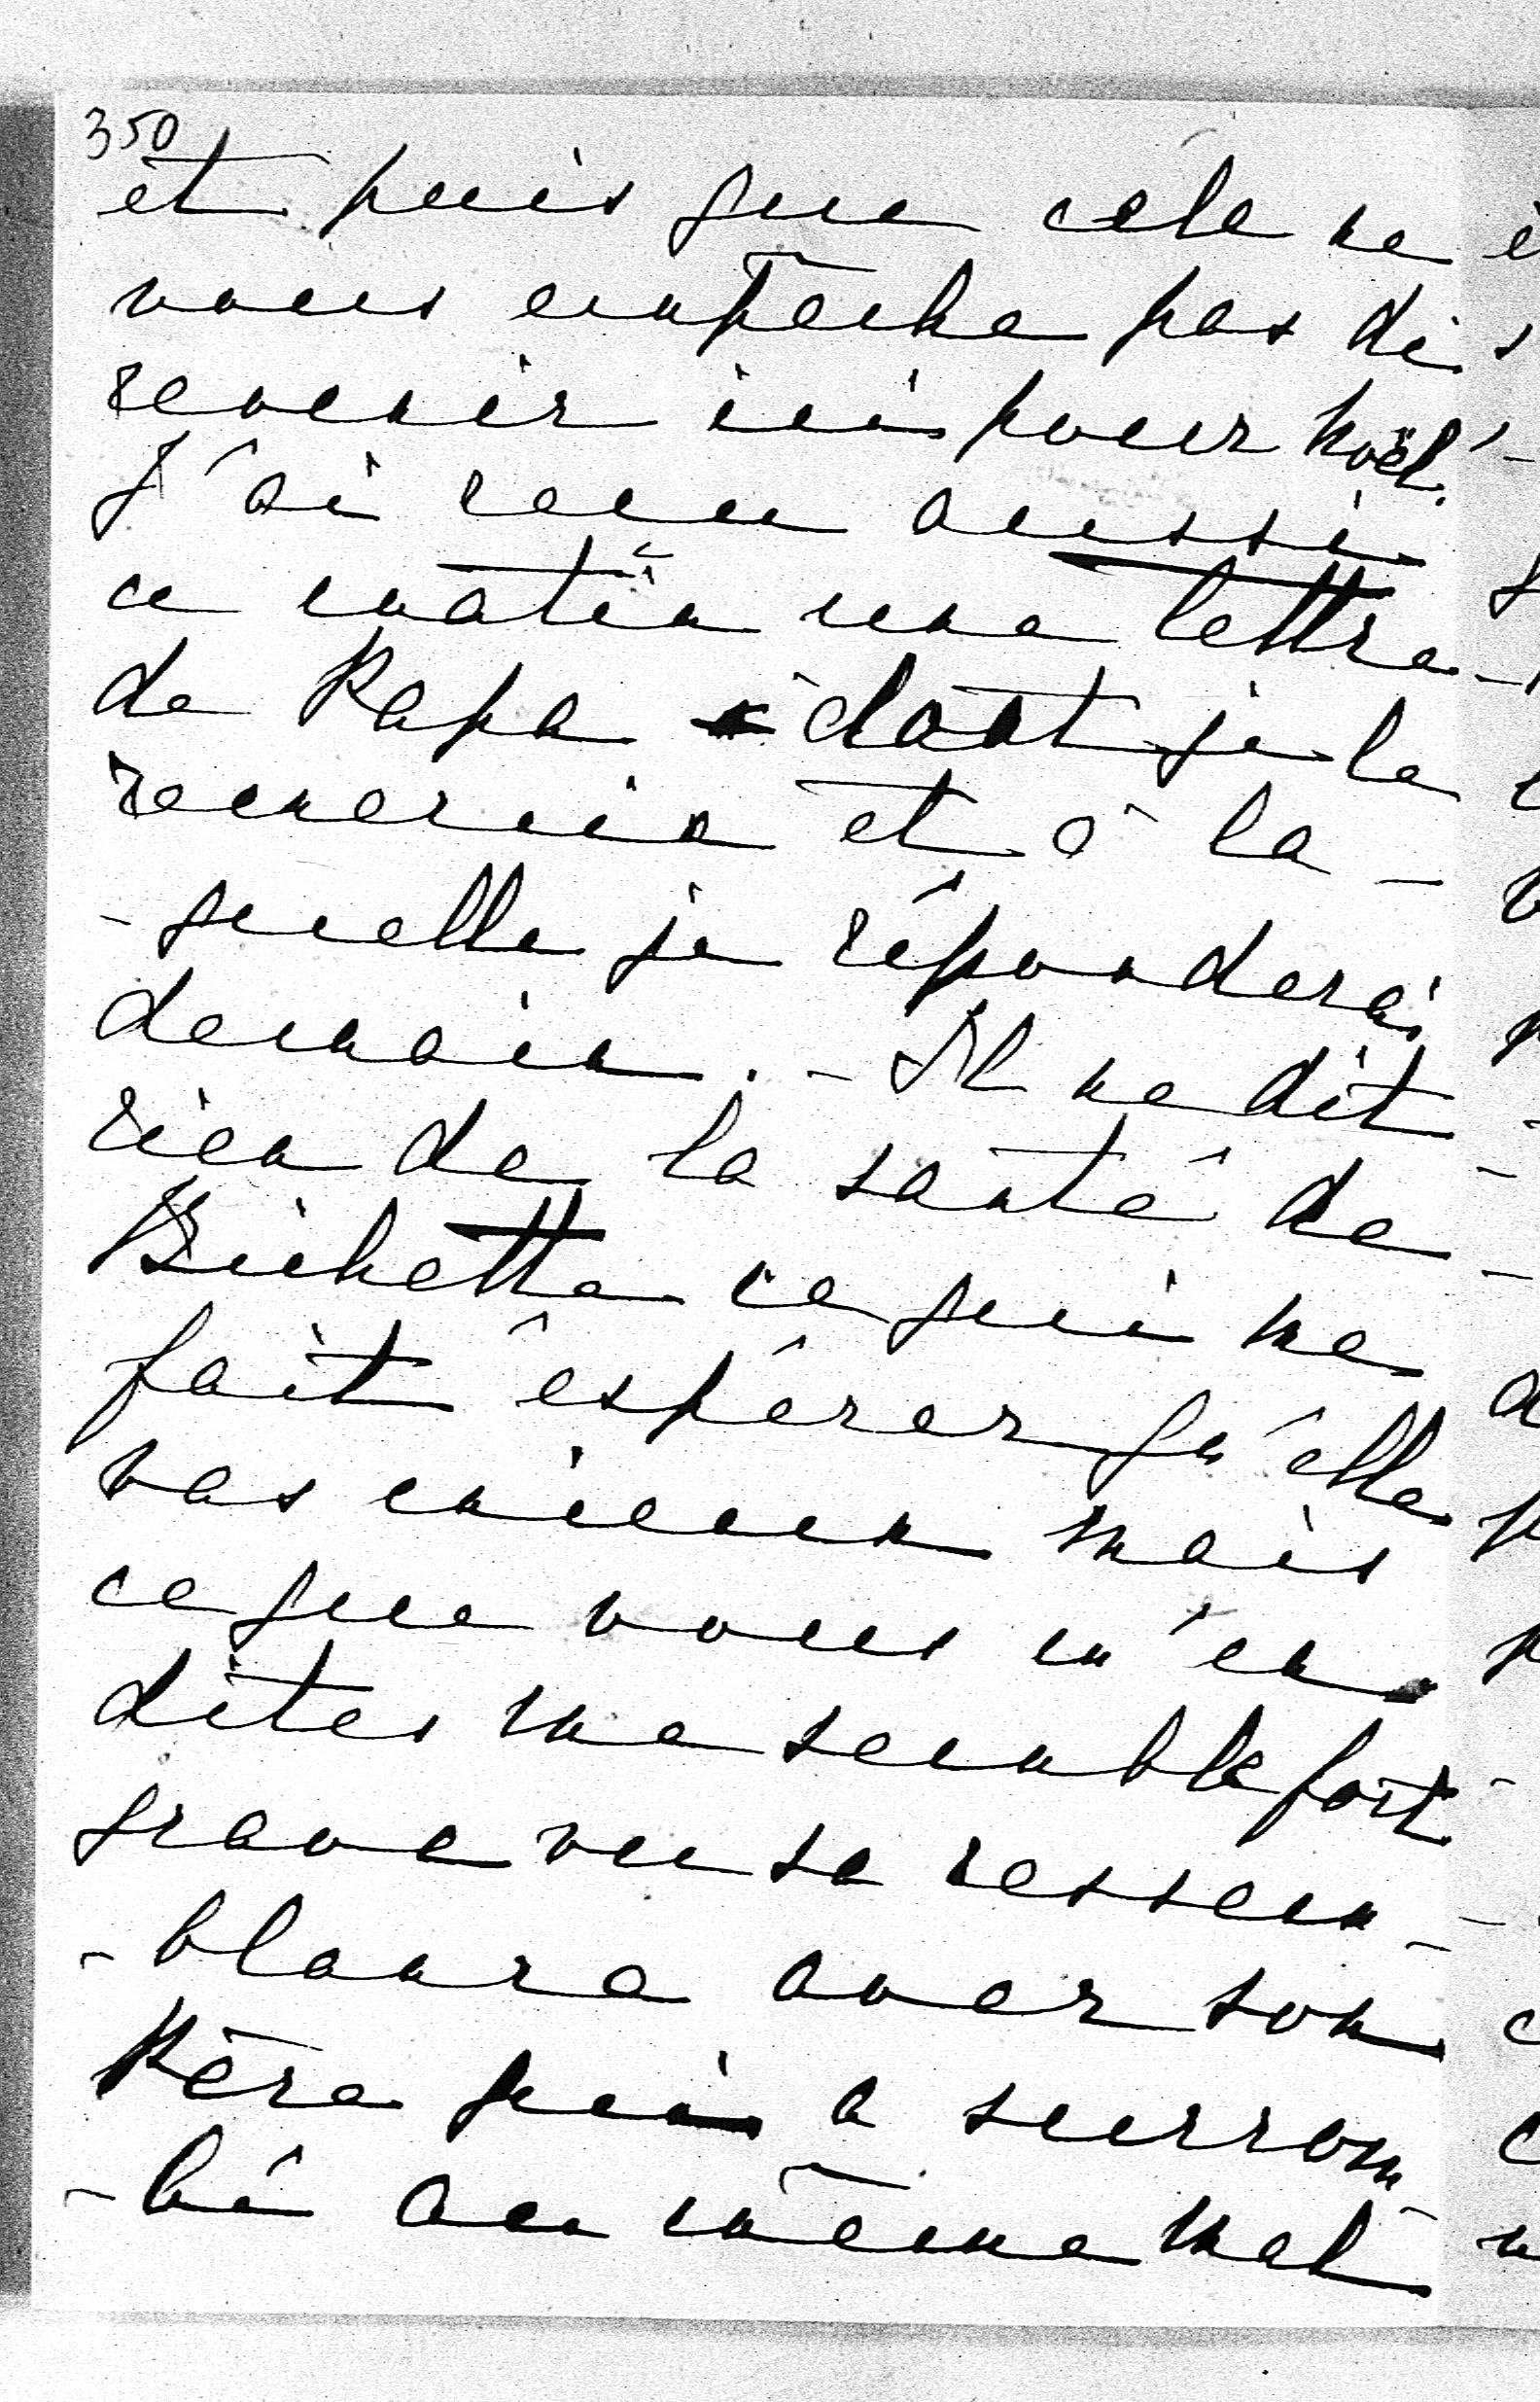 350
et puis que cela ne
vous empêche pas de
revenir ici pour Noël.
J'ai recu aussi
ce matin une lettre
de Papa dont je le
remercie et à la-
-quelle je réponderai
demain. - Il ne dit
rien de la santé de
Bichette ce qui me
fait espérer qu'elle
vas mieux mais
ce que vous m'en
dites me semble fort
grave vu sa ressem-
-blance avec son
Père qui a succom-
-bé au même mal